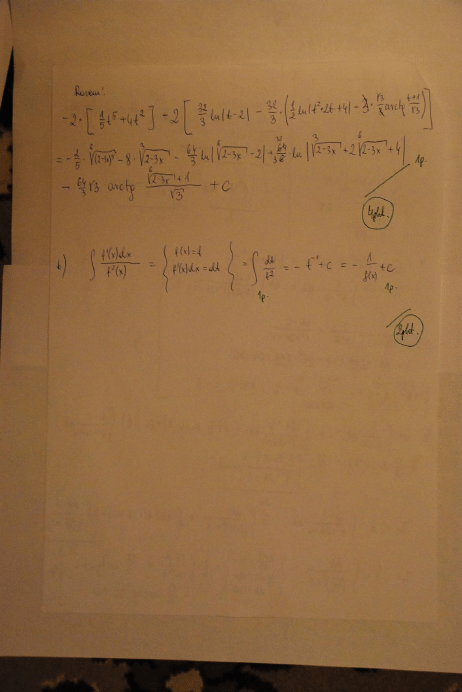 -2·[1/5 t⁵+4t²] - 2[32/3 ln|t-2| - 32/3·(1/2 ln|t²+2t+4| - 3·√3/3 arctg (t+1)/√3)]
= -2/5 ⁶√(2-3x)⁵ - 8·³√(2-3x) - 64/3 ln|⁶√(2-3x) - 2| + 32/3 ln|³√(2-3x) + 2 ⁶√(2-3x) + 4|
1p.
- 64/3 √3 arctg (⁶√(2-3x) + 1)/√3 + C
4pkt.
b) ∫ f'(x)dx/f²(x) = { f(x)=t f'(x)dx=dt } = ∫ dt/t² = - t⁻¹ + C = - 1/f(x) + C
1p. 1p.
2pkt.